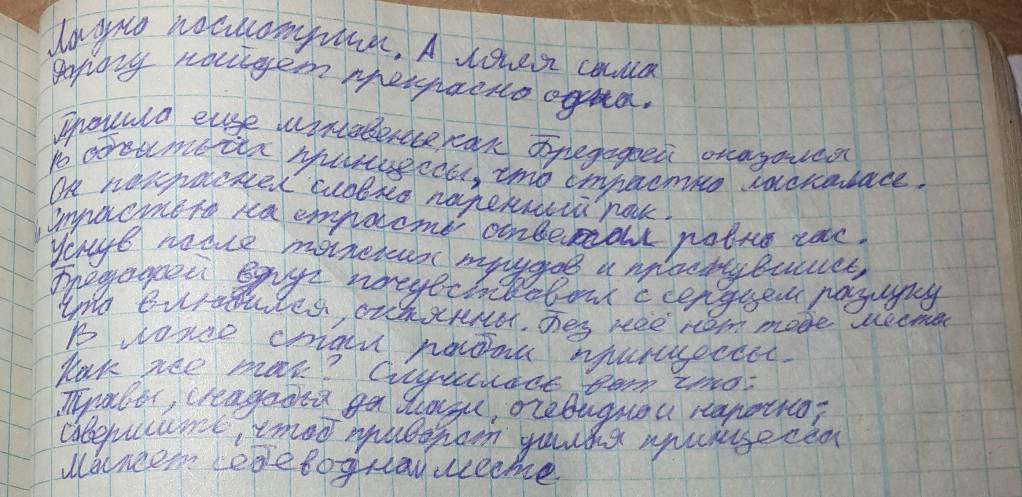 Ладно посмотрим. А ляля сама
Дорогу найдет прекрасно одна.
Прошло еще мгновенье как Бредофей оказался
В объятьях принцессы, что страстно ласкалась.
Он покраснел словно паренный рак.
Страстью на страсть отвечал ровно час.
Уснув после тяжских трудов и проснувшись,
Бредофей вдруг почувствовал с сердцем разлуку
Что влюбился, окаянны. Без неё нет тебе места
В ложе стал рабом принцессы.
Как же так? Случилось вот что:
Травы, снадобья да мази, очевидно и нарочно;
Совершить, чтоб приворот ушлая принцесса
Может себе в одном месте